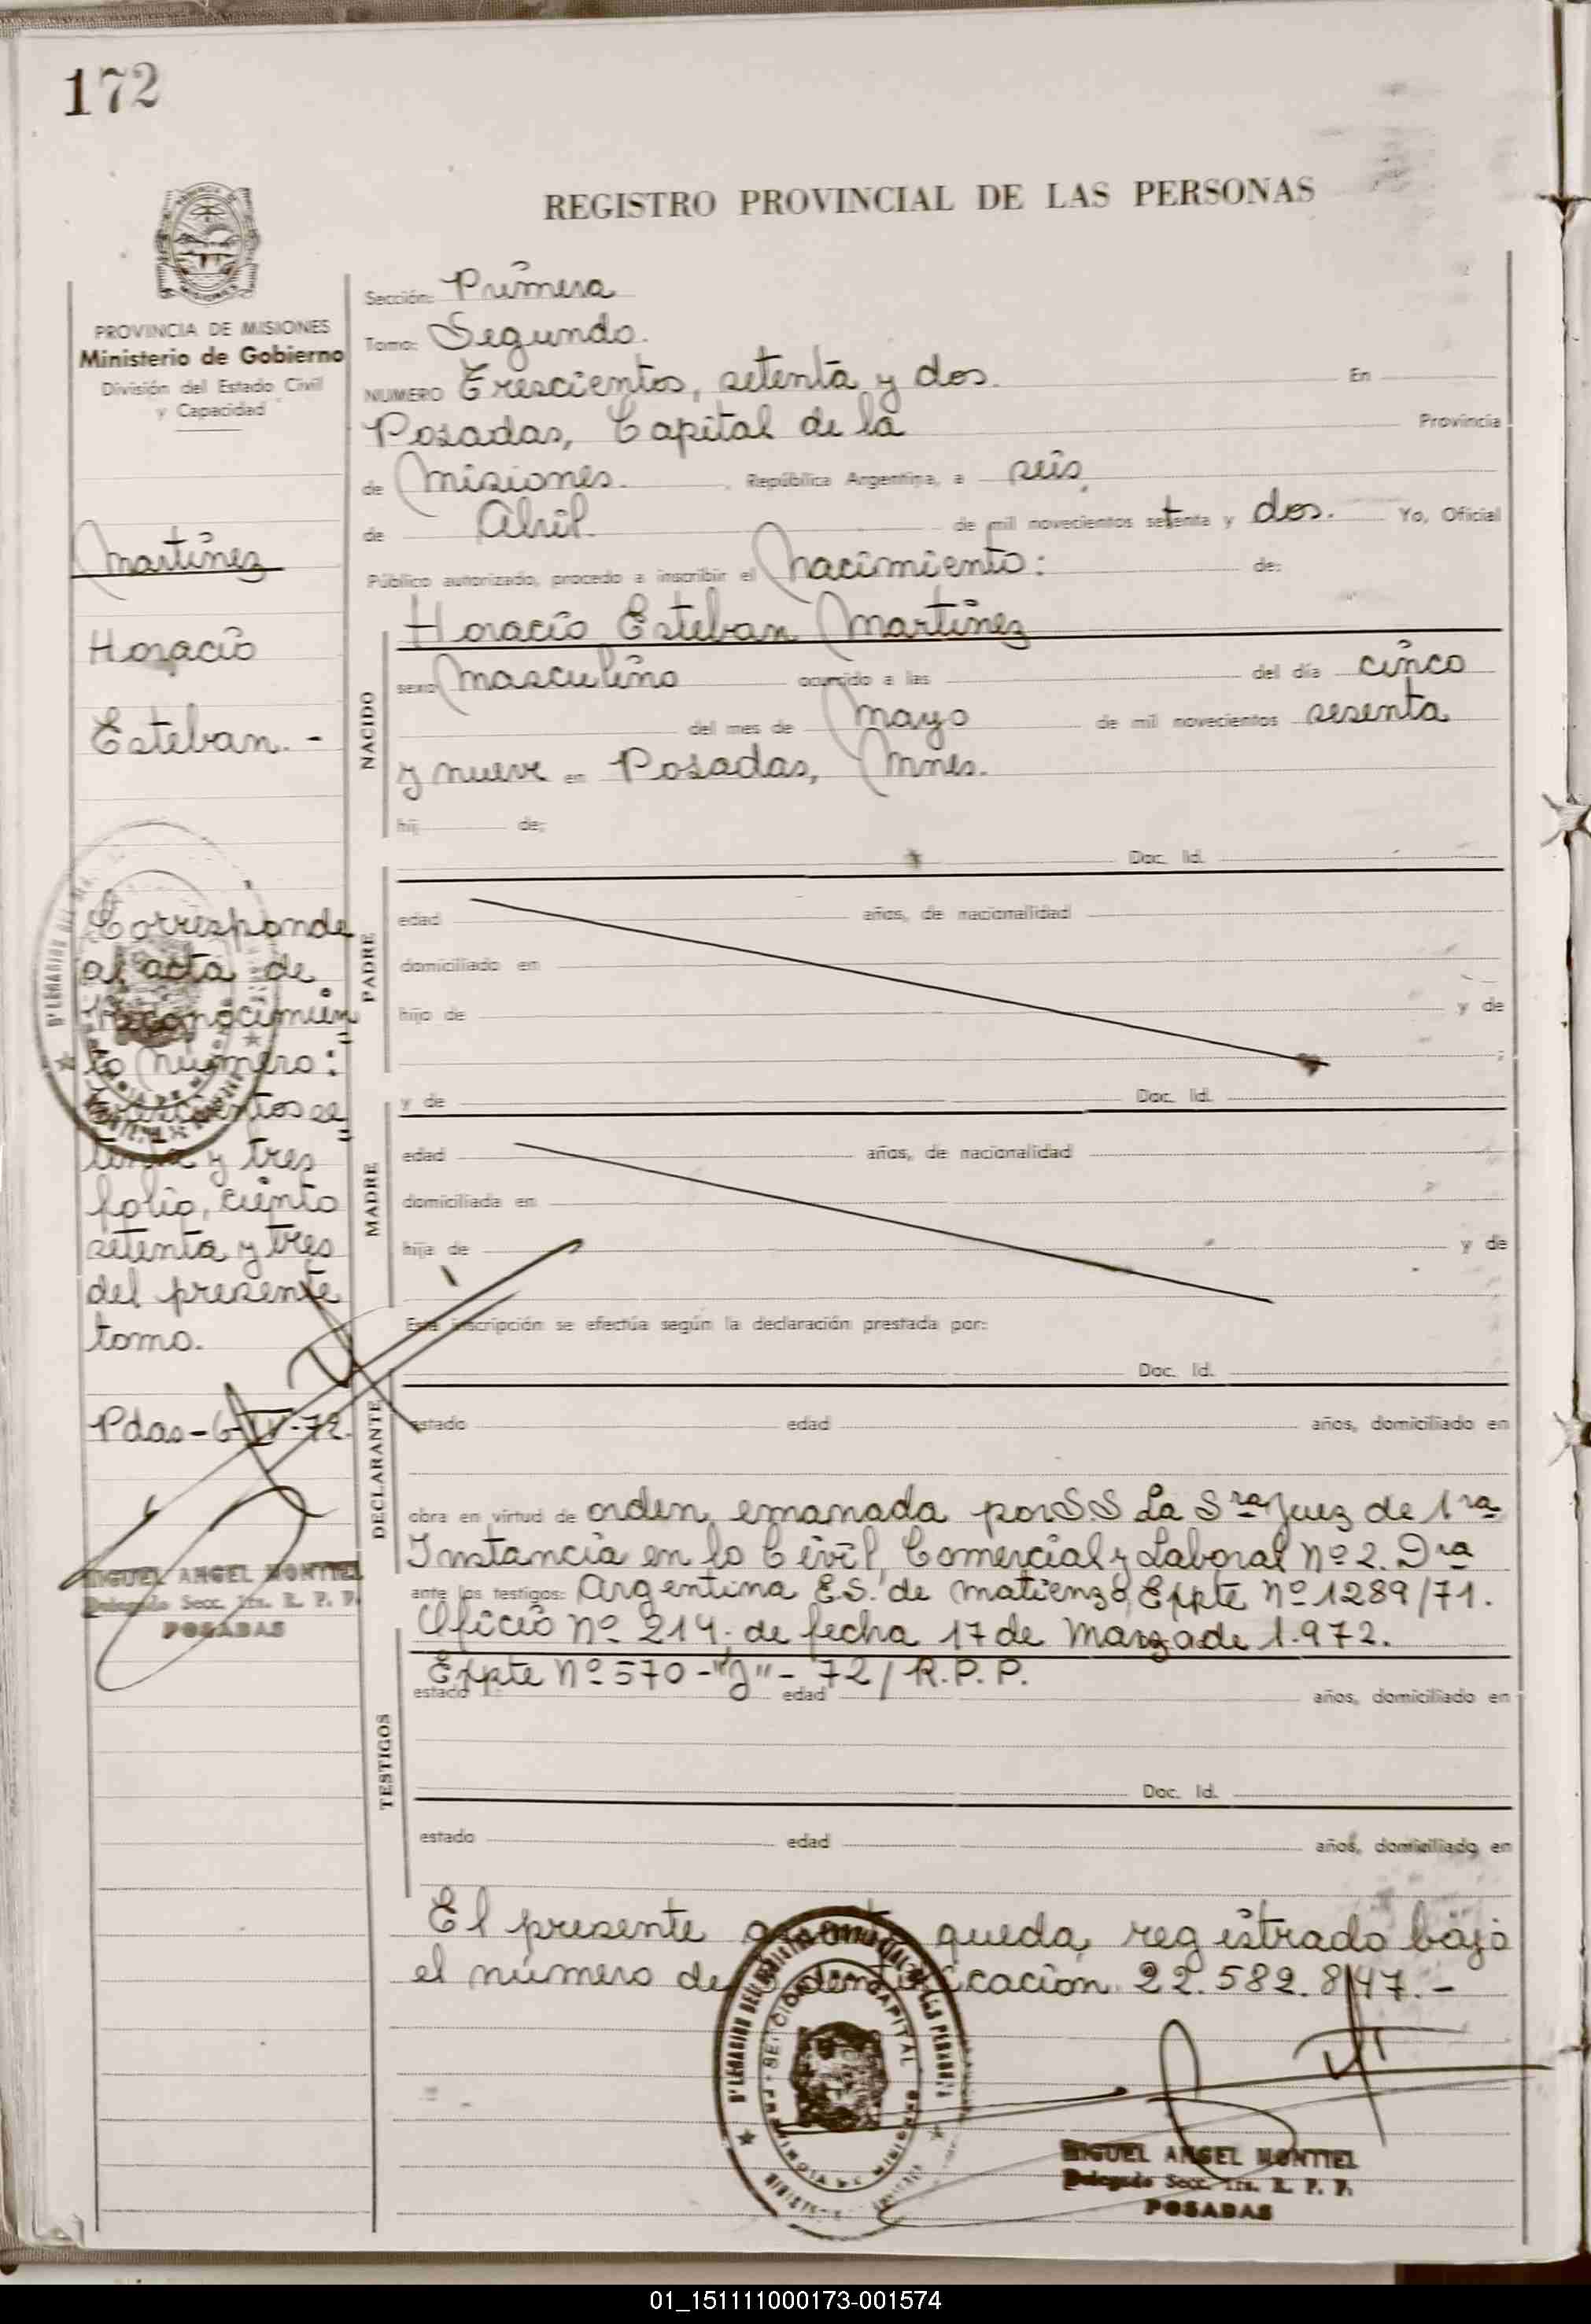 172
REGISTRO PROVINCIAL DE LAS PERSONAS
PROVINCIA DE MISIONES
Ministerio de Gobierno
División del Estado Civil
y Capacidad
Martínez
Horacio
Esteban.-
Corresponde
al acta de
Reconocimien
to número:
trescientos se
tenta y tres
folio, ciento
setenta y tres
del presente
tomo.
Pdas-6-IV-72.
MIGUEL ANGEL MONTIEL
Delegado Secc. 1ra. R. P. P.
POSADAS
Sección: Primera
Tomo: Segundo.
NUMERO Trescientos, setenta y dos. En
Posadas, Capital de la Provincia
de Misiones. República Argentina, a seis,
de Abril. de mil novecientos setenta y dos. Yo, Oficial
Público autorizado, procedo a inscribir el Nacimiento: de:
NACIDO
Horacio Esteban Martínez
sexo Masculino ocurrido a las del día cinco
del mes de Mayo de mil novecientos sesenta
y nueve en Posadas, Mnes.
hij de:
Doc. Id.
PADRE
edad años, de nacionalidad
domiciliado en
hijo de y de
;
y de Doc. Id.
MADRE
edad años, de nacionalidad
domiciliada en
hija de y de
Esta inscripción se efectúa según la declaración prestada por:
Doc. Id.
DECLARANTE
estado edad años, domiciliado en
obra en virtud de orden, emanada por S.S La Sra Juez de 1ra
Instancia en lo Civil, Comercial y Laboral Nº 2. Dra
ante los testigos: Argentina E.S. de Matienzo, Expte Nº 1289/71.
Oficio Nº 214. de fecha 17 de Marzo de 1.972.
Expte Nº 570-"J"- 72/ R.P.P.
TESTIGOS
estado edad años, domiciliado en
Doc. Id.
estado edad años, domiciliado en
El presente queda, registrado bajo
el número de identificación 22.582.847.-
DELEGACION DEL REGISTRO PROVINCIAL DE LAS PERSONAS
SECCION CAPITAL
PROVINCIA DE MISIONES
MIGUEL ANGEL MONTIEL
Delegado Secc. 1ra. R. P. P.
POSADAS
01_151111000173-001574